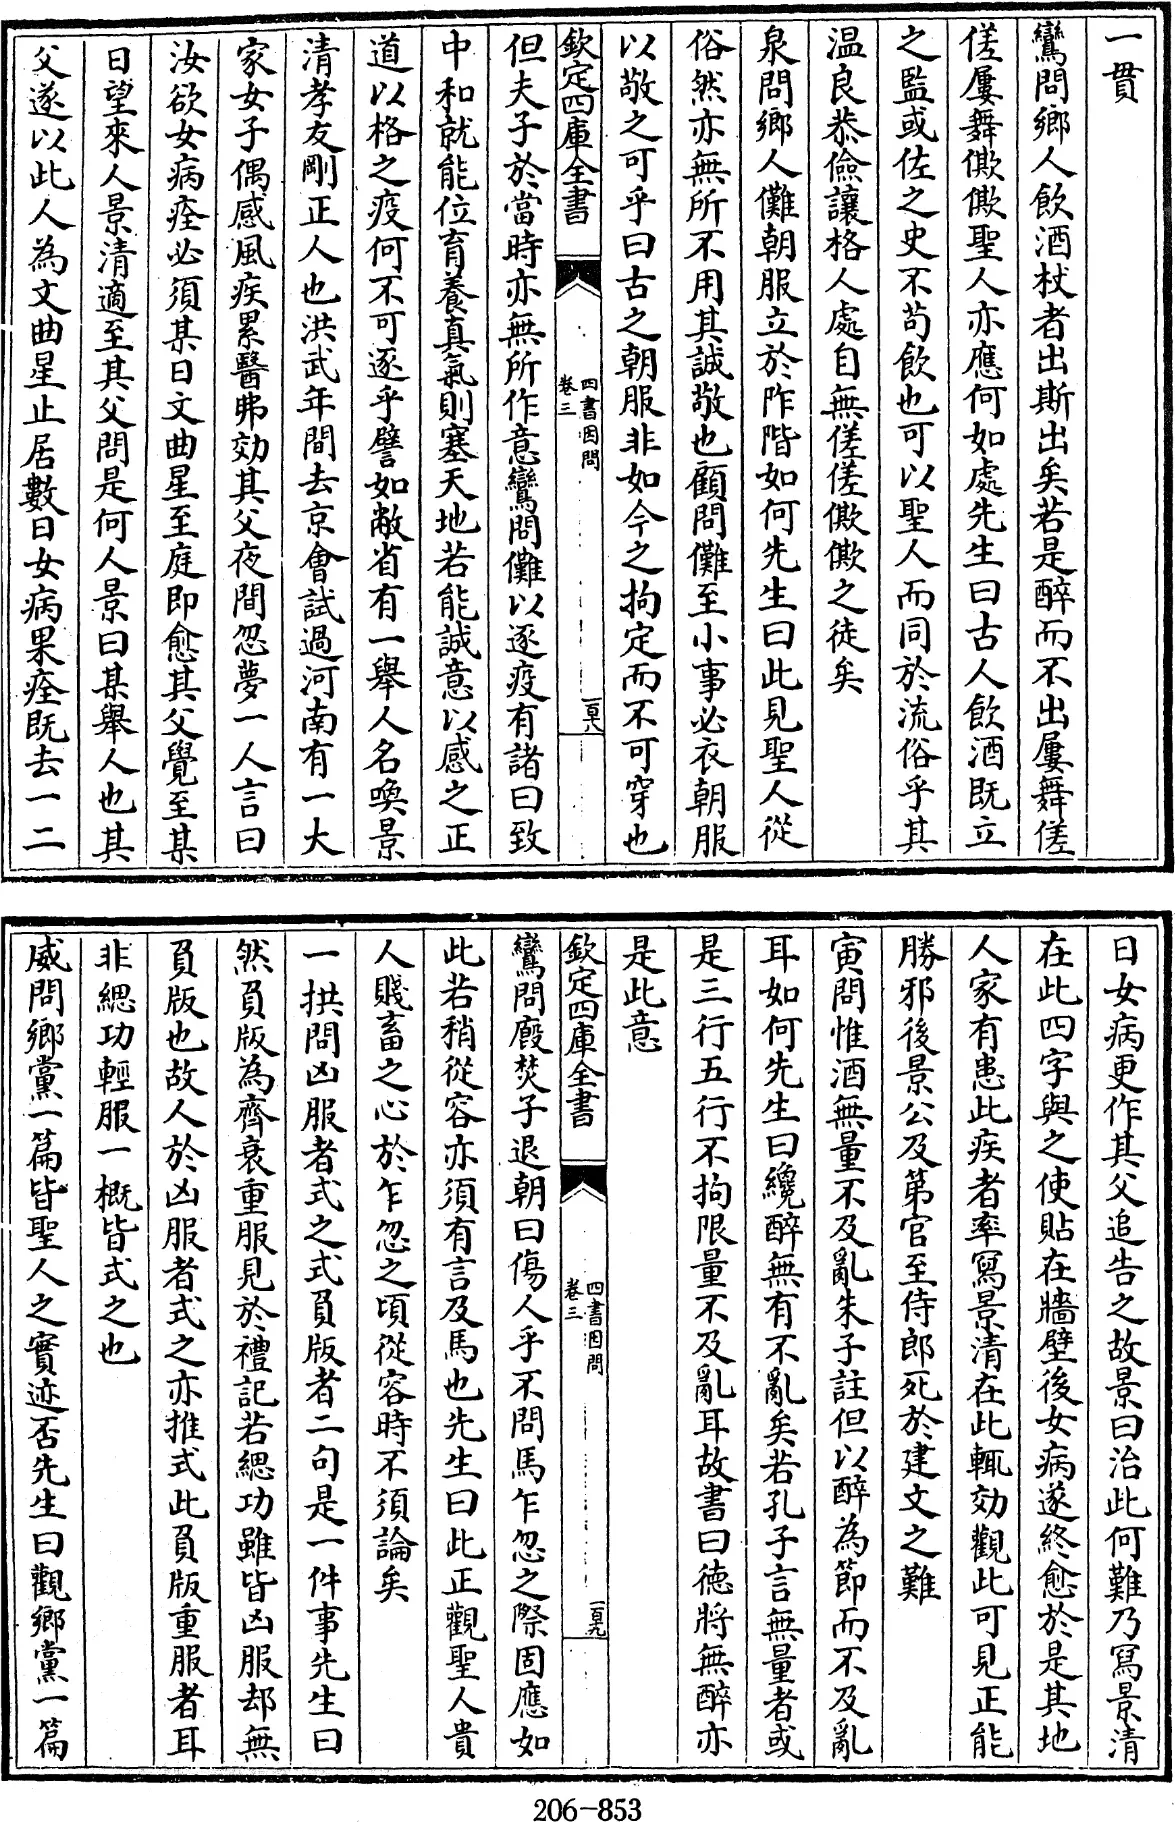 一貫
鸞問鄉人飲酒杖者出斯出矣若是醉而不出屢舞傞
傞屢舞僛僛聖人亦應何如處先生曰古人飲酒既立
之監或佐之史不茍飲也可以聖人而同於流俗乎其
温良恭儉讓格人處自無傞傞僛僛之徒矣
泉問鄉人儺朝服立於阼階如何先生曰此見聖人從
俗然亦無所不用其誠敬也顧問儺至小事必衣朝服
以敬之可乎曰古之朝服非如今之拘定而不可穿也
欽定四庫全書
四書因問
卷三
一百十八
但夫子於當時亦無所作意鸞問儺以逐疫有諸曰致
中和就能位育養真氣則塞天地若能誠意以感之正
道以格之疫何不可逐乎譬如敝省有一舉人名喚景
清孝友剛正人也洪武年間去京會試過河南有一大
家女子偶感風疾累醫弗効其父夜間忽夢一人言曰
汝欲女病痊必須某日文曲星至庭即愈其父覺至某
日望來人景清適至其父問是何人景曰某舉人也其
父遂以此人為文曲星止居數日女病果痊既去一二
日女病更作其父追告之故景曰治此何難乃寫景清
在此四字與之使貼在牆壁後女病遂終愈於是其地
人家有患此疾者率寫景清在此輒効觀此可見正能
勝邪後景公及第官至侍郎死於建文之難
寅問惟酒無量不及亂朱子註但以醉為節而不及亂
耳如何先生曰纔醉無有不亂矣若孔子言無量者或
是三行五行不拘限量不及亂耳故書曰德將無醉亦
是此意
欽定四庫全書
四書因問
卷三
一百十九
鸞問廐焚子退朝曰傷人乎不問馬乍忽之際固應如
此若稍從容亦須有言及馬也先生曰此正觀聖人貴
人賤畜之心於乍忽之頃從容時不須論矣
一拱問凶服者式之式負版者二句是一件事先生曰
然負版為齊衰重服見於禮記若緦功雖皆凶服却無
負版也故人於凶服者式之亦推式此負版重服者耳
非緦功輕服一概皆式之也
威問鄉黨一篇皆聖人之實迹否先生曰觀鄉黨一篇
206-853